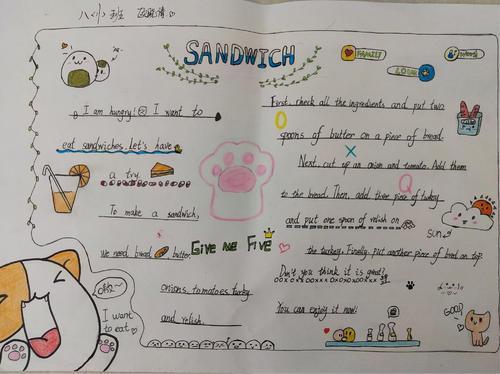 八(1)班
SANDWICH
FAMILY
LOVE
I am hungry! I want to
eat sandwiches. Let's have
a try.
To make a sandwich,
we need bread, butter,
onions, tomatoes, turkey
and relish.
Give me Five
I want
to eat
First, check all the ingredients and put two
spoons of butter on a piece of bread.
Next, cut up an onion and tomato. Add them
to the bread. Then, add three piece of turkey
and put one spoon of relish on
the turkey. Finally, put another piece of bread on top.
Don't you think it is great?
You can enjoy it now!
sun
GOOD